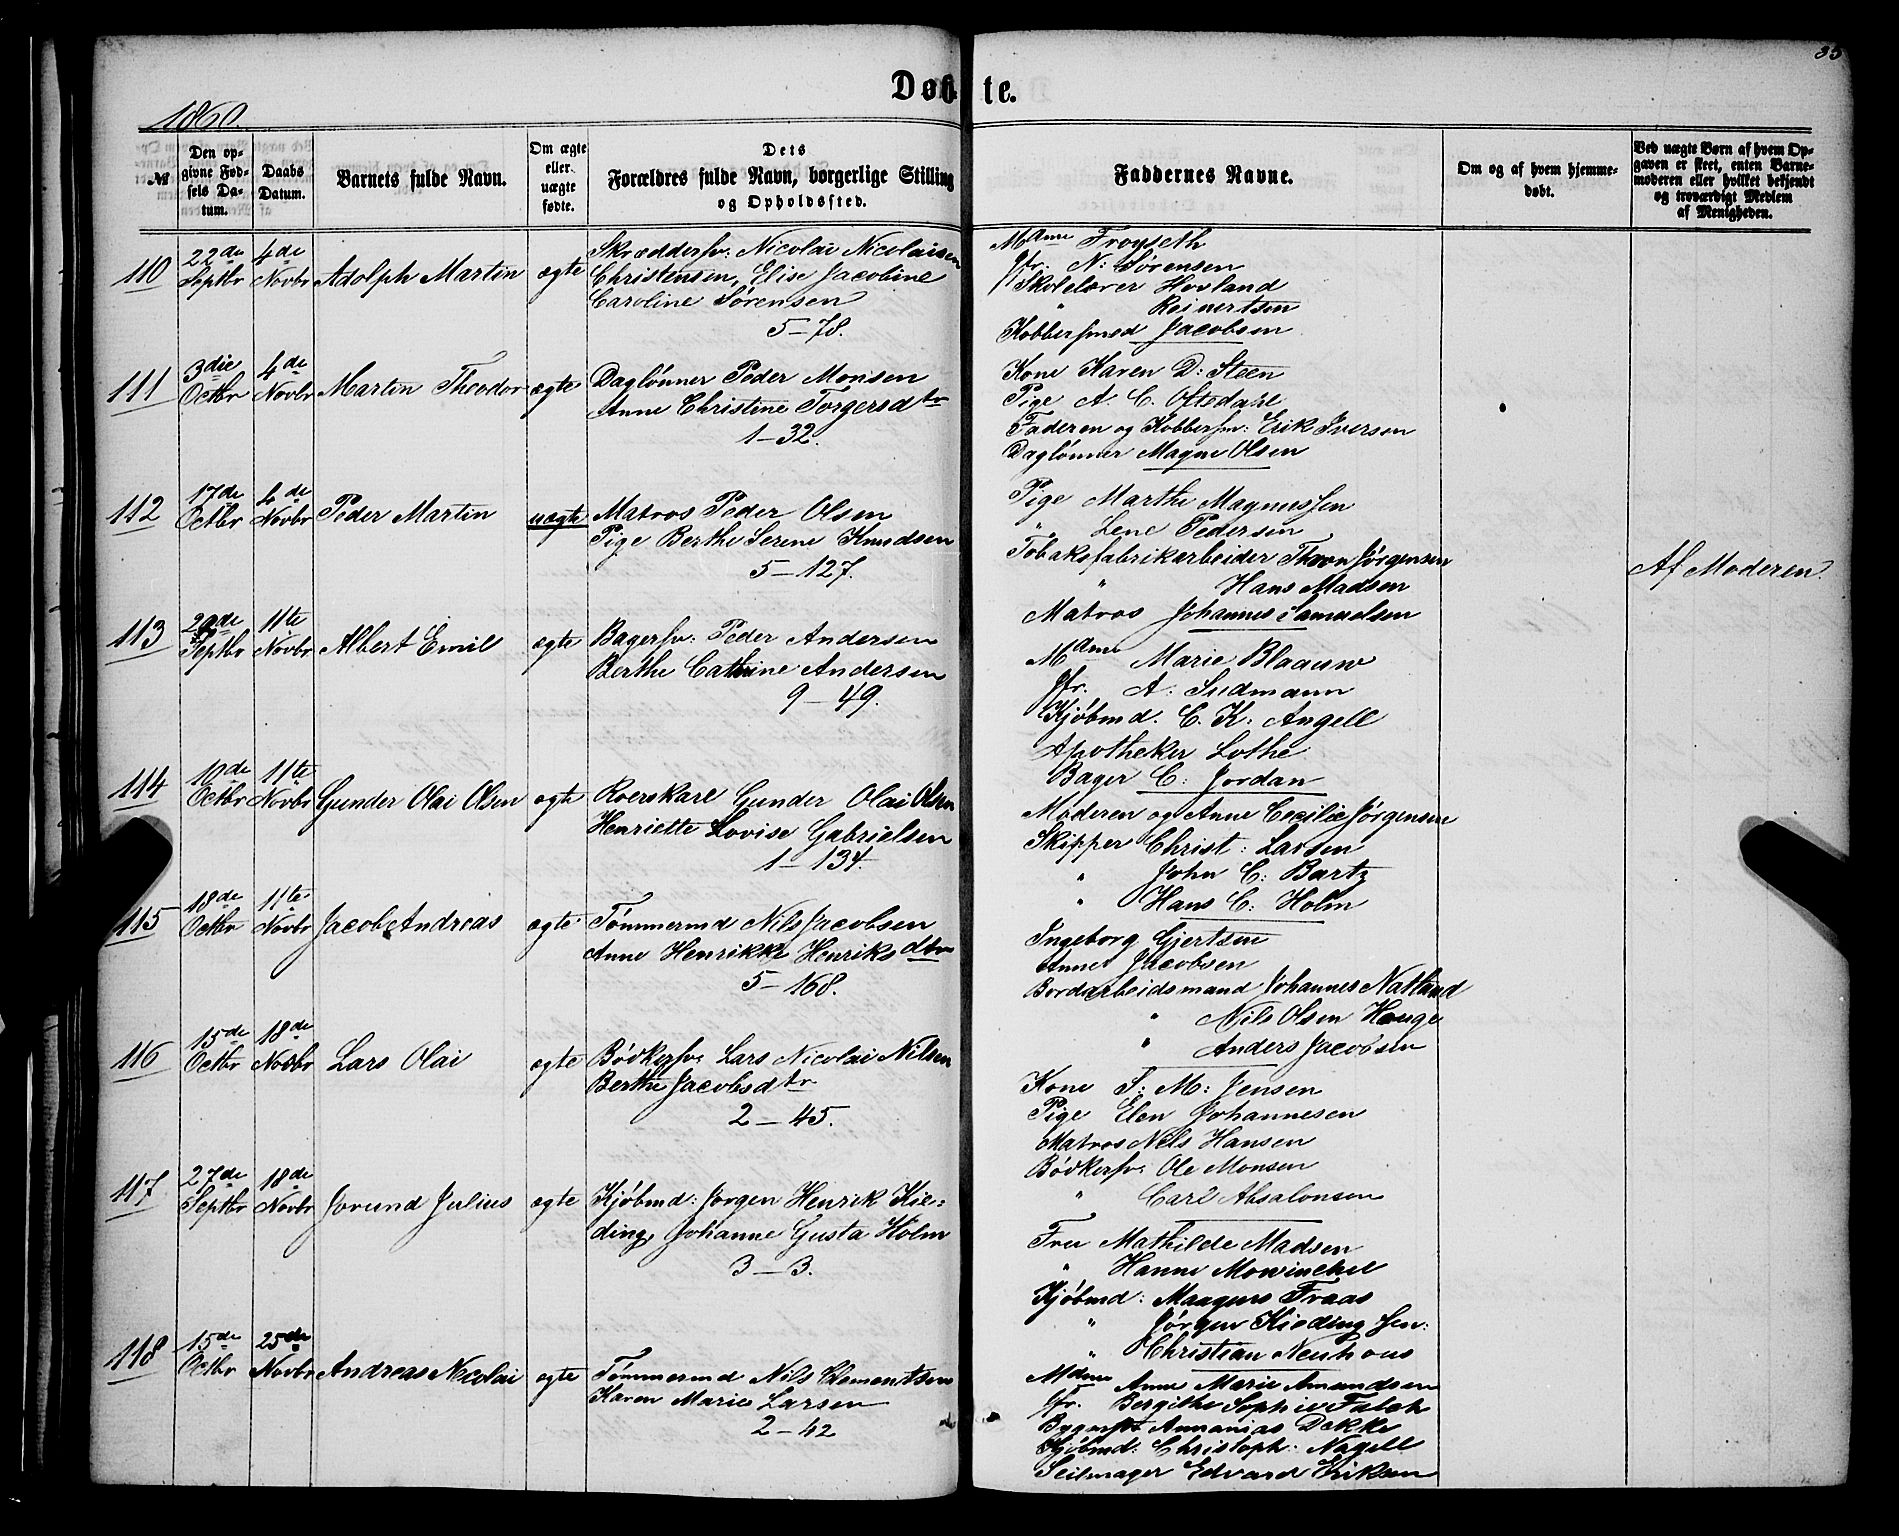 35
Døbte.
1860.
№
Den opgivne Fødsels Datum.
Daabs Datum.
Barnets fulde Navn.
Om ægte eller uægte fødte.
Dets Forældres fulde Navn, borgerlige Stilling og Opholdssted.
Faddernes Navne.
Om og af hvem hjemmedøbt.
Ved uægte Børn af hvem Opgaven er skeet, enten Barnemoderen eller hvilket bekjendt og troværdigt Medlem af Menigheden.
110 22de Septbr 4de Novbr Adolph Martin ægte
Skræddersv: Nicolai Nicolaisen
Christensen, Elise Jacobine
Caroline Sørensen
5–78.
Mdme Frøyseth
Jfr. N: Sørensen
Skolelærer Hovland
" Reinertsen
Kobbersmed Jacobsen
111 3die Octbr 4de Novbr Martin Theodor ægte
Daglønner Peder Monsen
Anne Christine Torgersdtr
1–32.
Kone Karen D: Steen
Pige A. C. Oftedahl
Faderen og Kobbersm: Erik Iversen
Daglønner Magne Olsen
112 17de Octbr 4de Novbr Peder Martin uægte
Matros Peder Olsen
Pige Berthe Serene Knudsen
5–127.
Pige Marthe Magnessen
" Lene Pedersen
Tobaksfabrikarbeider Thron Jørgensen
" Hans Madsen
Matros Johannes Samuelsen
Af Moderen.
113 29de Septbr 11te Novbr Albert Emil ægte
Bagersv: Peder Andersen
Berthe Cathrine Andersen
9–49.
Mdme Marie Blaauw
Jfr. A: Sudmann
Kjøbmd. C. K. Angell
Apotheker Lothe
Bager C: Jordan
114 10de Octbr 11te Novbr Gunder Olai Olsen ægte
Roerskarl Gunder Olai Olsen
Henriette Lovise Gabrielsen
1–134.
Moderen og Anne Cecilie Jørgensen
Skipper Christ: Larsen
" John C: Bartz
" Hans C: Holm
115 18de Octbr 11te Novbr Jacob Andreas ægte
Tømmermd Nils Jacobsen
Anne Henrikke Henriksdtr
5–168.
Ingeborg Gjertsen
Anne Jacobsen
Bordarbeidsmand Johannes Natland
" Nils Olsen Houge
" Anders Jacobsen
116 15de Octbr 18de Novbr Lars Olai ægte
Bødkersv: Lars Nicolai Nilsen
Berthe Jacobsdtr
2–45.
Kone F: M: Jensen
Pige Elen Johannesen
Matros Nils Hansen
Bødkersv: Ole Monsen
" Carl Absalonsen
117 27de Septbr 18de Novbr Jorund Julius ægte
Kjøbmd: Jørgen Henrik Kie-
ding, Johanne Gusta Holm
3–3.
Fru Mathilde Madsen
" Hanne Mowinckel
Kjøbmd: Maagens Traas
" Jørgen Kieding Sen:
" Christian Neuhaus
118 15de Octbr 25de Novbr Andreas Nicolai ægte
Tømmermd Nils Clementsen
Karen Marie Larsen
2–42
Mdme Anne Marie Amundsen
Jfr. Bergithe Sophie Falch
Ananias Dekke
Kjøbmd: Christoph: Nagell
Seilmager Edvard Eriksen